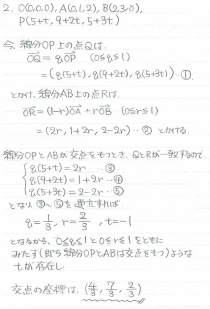 2. O(0,0,0), A(0,1,2), B(2,3,0),
P(5+t, 9+2t, 5+3t)
今、線分OP上の点Qは、
OQ = qOP (0≦q≦1)
= (q(5+t), q(9+2t), q(5+3t)) …①,
とかける。線分AB上の点Rは、
OR = (1-r)OA + rOB (0≦r≦1)
= (2r, 1+2r, 2-2r) …② とかける
線分OPとABが交点をもつとき、QとRが一致するので
q(5+t) = 2r …③
q(9+2t) = 1+2r …④
q(5+3t) = 2-2r …⑤
となり ③〜⑤を連立すれば、
q = 1/3, r = 2/3, t = -1
となるから、0≦q≦1と0≦r≦1をともに
みたす(即ち線分OPとABは交点をもつ)ような
tが存在し、
交点の座標は、(4/3, 7/3, 2/3)